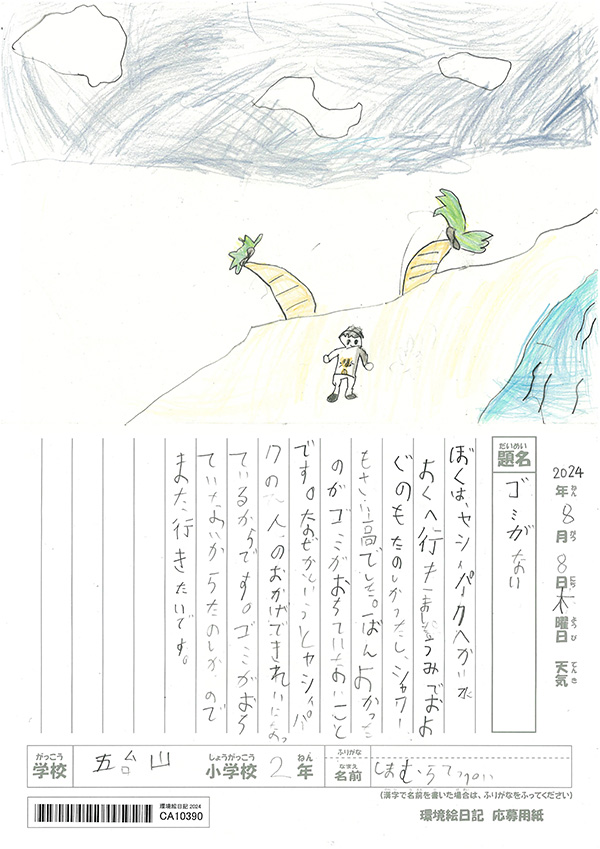 2024年ねん8月がつ8日にち木曜日ようび 天気てんき
だいめい
題名
ゴミがない
ぼくは、ヤシィパークへかい水
よくへ行きました。うみでおよ
ぐのもたのしかったし、シャワー
もさい高でした。一ばんよかった
のがゴミがおちていないこと
です。なぜかというとヤシィパー
クの人のおかげできれいになっ
ているからです。ゴミがおち
ていないからたのしかったので
また、行きたいです。
がっこう
学校
五台山
しょうがっこう
小学校
2
ねん
年
ふりがな
なまえ
名前
しまむら
(漢字で名前を書いた場合は、ふりがなをふってください)
環境絵日記 2024
CA10390
環境絵日記 応募用紙